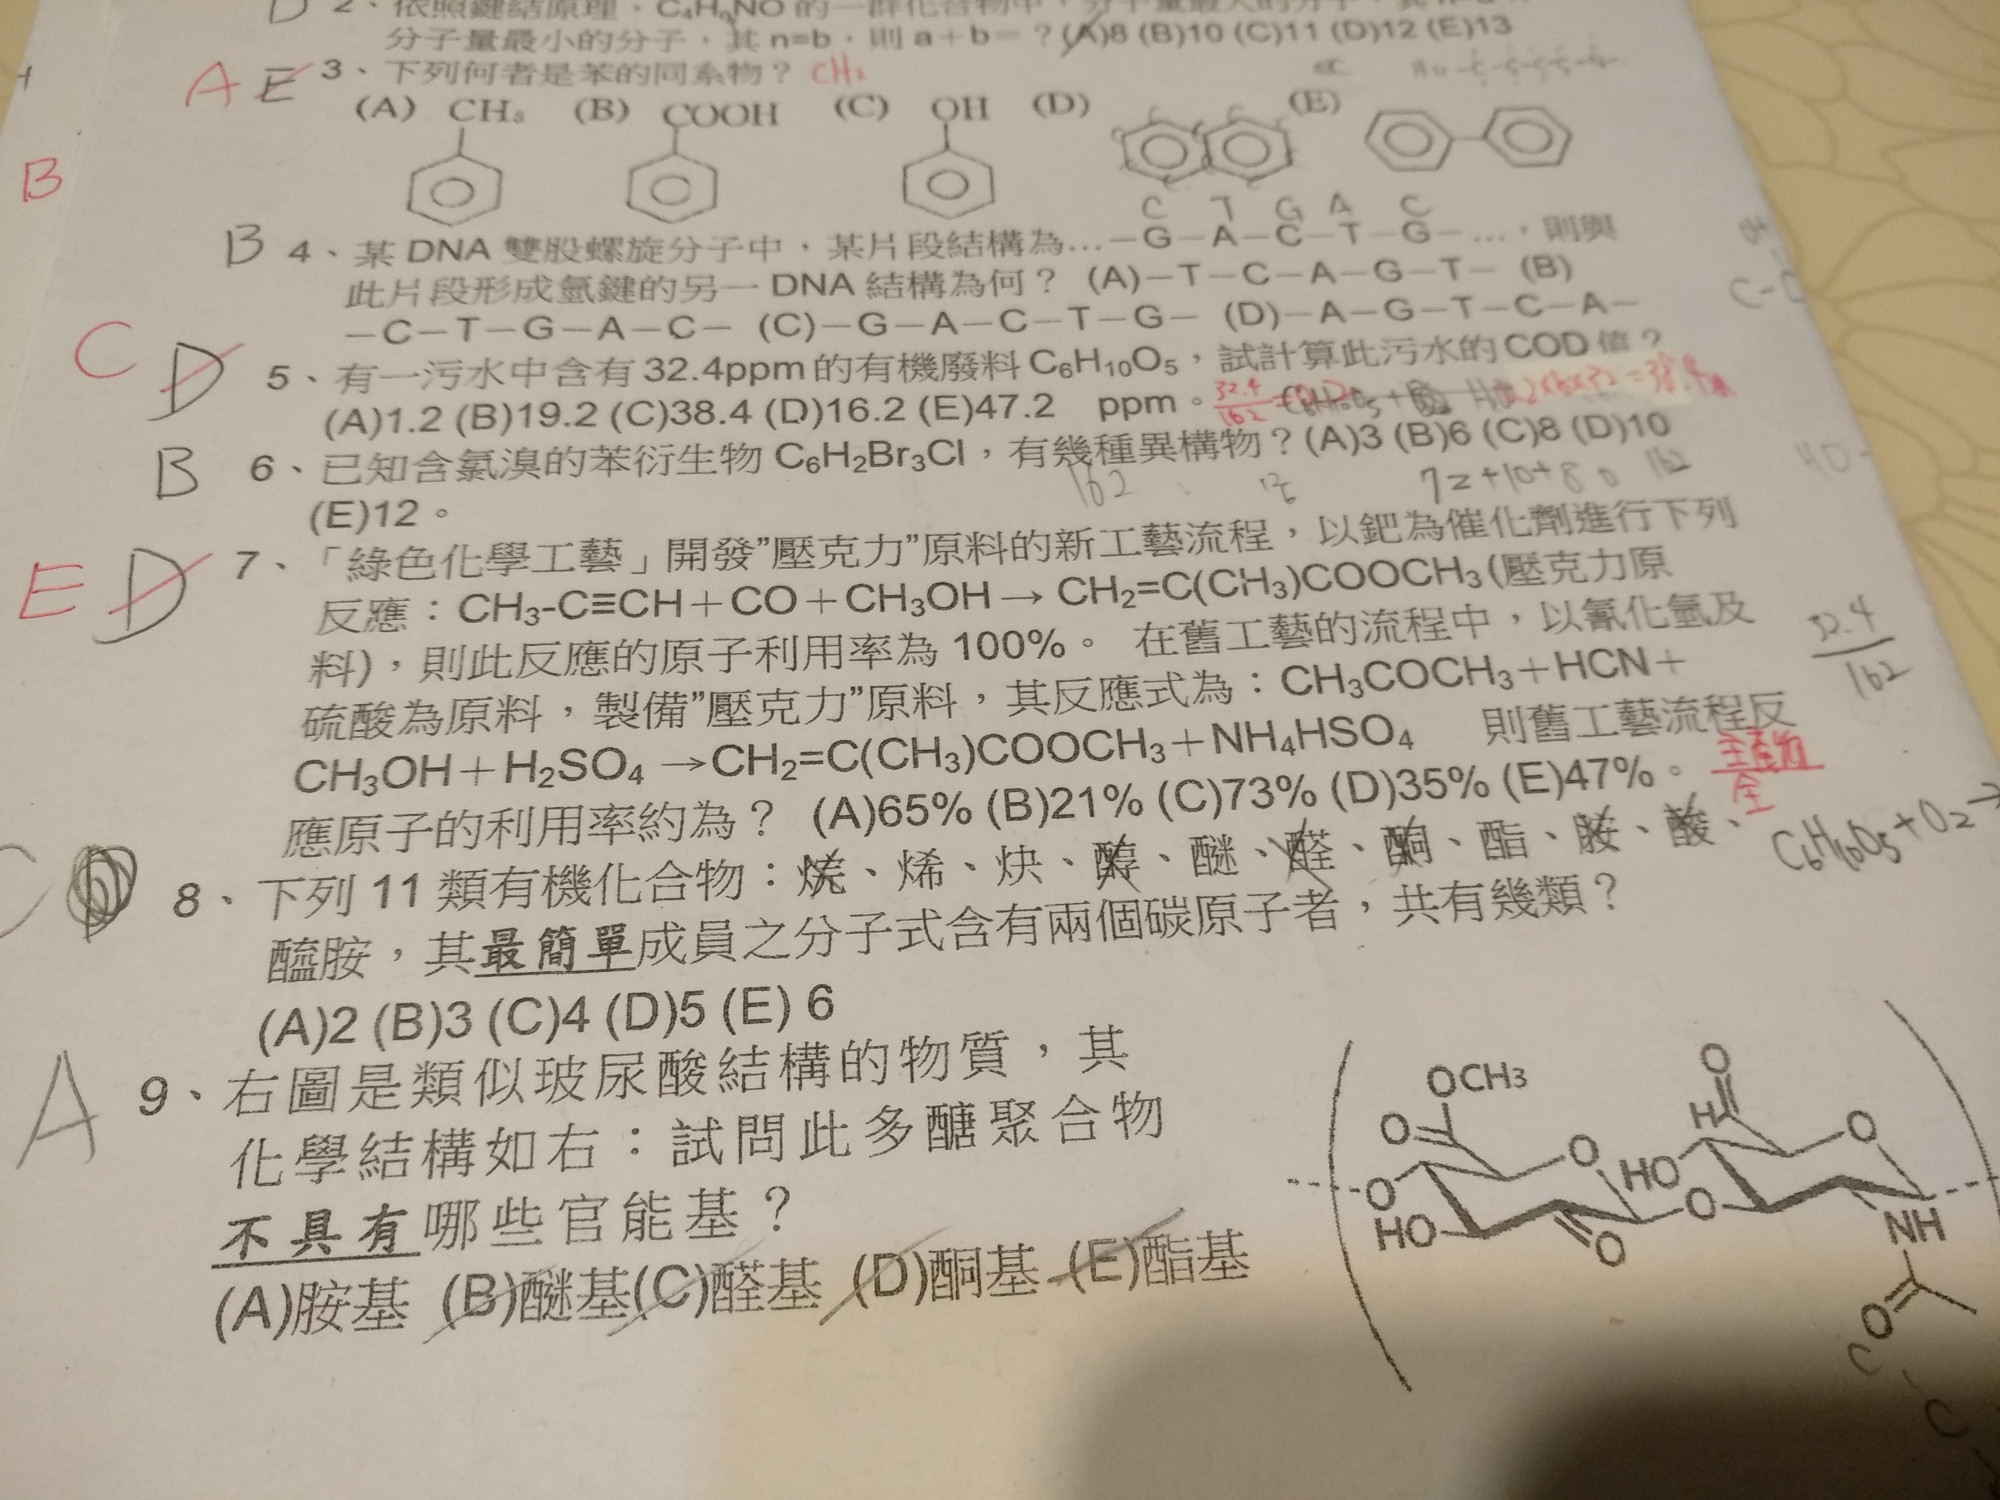 D 2、依照鍵結原理，C₄HₙNO 的一群化合物中，分子量最大的分子，其 n=a
分子量最小的分子，其 n=b，則 a＋b＝？(A)8 (B)10 (C)11 (D)12 (E)13
A E 3、下列何者是苯的同系物？ CH₃
(A) CH₃ (B) COOH (C) OH (D) (E)
B
C T G A C
B 4、某 DNA 雙股螺旋分子中，某片段結構為…－G－A－C－T－G－…，則與
此片段形成氫鍵的另一 DNA 結構為何？ (A)－T－C－A－G－T－ (B)
－C－T－G－A－C－ (C)－G－A－C－T－G－ (D)－A－G－T－C－A－
C D 5、有一污水中含有 32.4ppm 的有機廢料 C₆H₁₀O₅，試計算此污水的 COD 值？
(A)1.2 (B)19.2 (C)38.4 (D)16.2 (E)47.2 ppm。 32.4/162
B 6、已知含氯溴的苯衍生物 C₆H₂Br₃Cl，有幾種異構物？(A)3 (B)6 (C)8 (D)10
162 72+10+80 162
(E)12。
E D 7、「綠色化學工藝」開發”壓克力”原料的新工藝流程，以鈀為催化劑進行下列
反應：CH₃-C≡CH＋CO＋CH₃OH→ CH₂=C(CH₃)COOCH₃(壓克力原
料)，則此反應的原子利用率為 100%。 在舊工藝的流程中，以氰化氫及
32.4/162
硫酸為原料，製備”壓克力”原料，其反應式為：CH₃COCH₃＋HCN＋
CH₃OH＋H₂SO₄ →CH₂=C(CH₃)COOCH₃＋NH₄HSO₄ 則舊工藝流程反
應原子的利用率約為？ (A)65% (B)21% (C)73% (D)35% (E)47%。
C 8、下列 11 類有機化合物：烷、烯、炔、醇、醚、醛、酮、酯、胺、酸、
C₆H₁₀O₅+O₂→
醯胺，其最簡單成員之分子式含有兩個碳原子者，共有幾類？
(A)2 (B)3 (C)4 (D)5 (E) 6
A 9、右圖是類似玻尿酸結構的物質，其
化學結構如右：試問此多醣聚合物
不具有哪些官能基？
(A)胺基 (B)醚基(C)醛基 (D)酮基 (E)酯基
OCH3 O
O H O
O O HO
HO O O NH
O
C
C